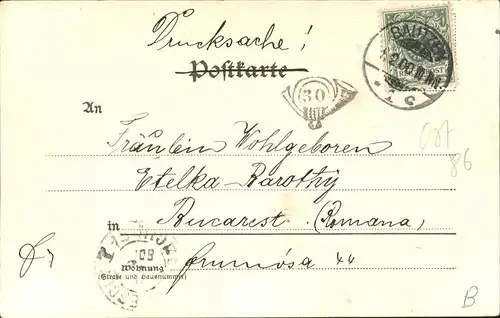 Drucksache!
Postkarte
BAUTZEN
30
An
Fräulein Wohlgeboren
Etelka Barothy
in Bucarest. (Romana)
Frumósa 44
Wohnung
(Straße und Hausnummer)
86
B